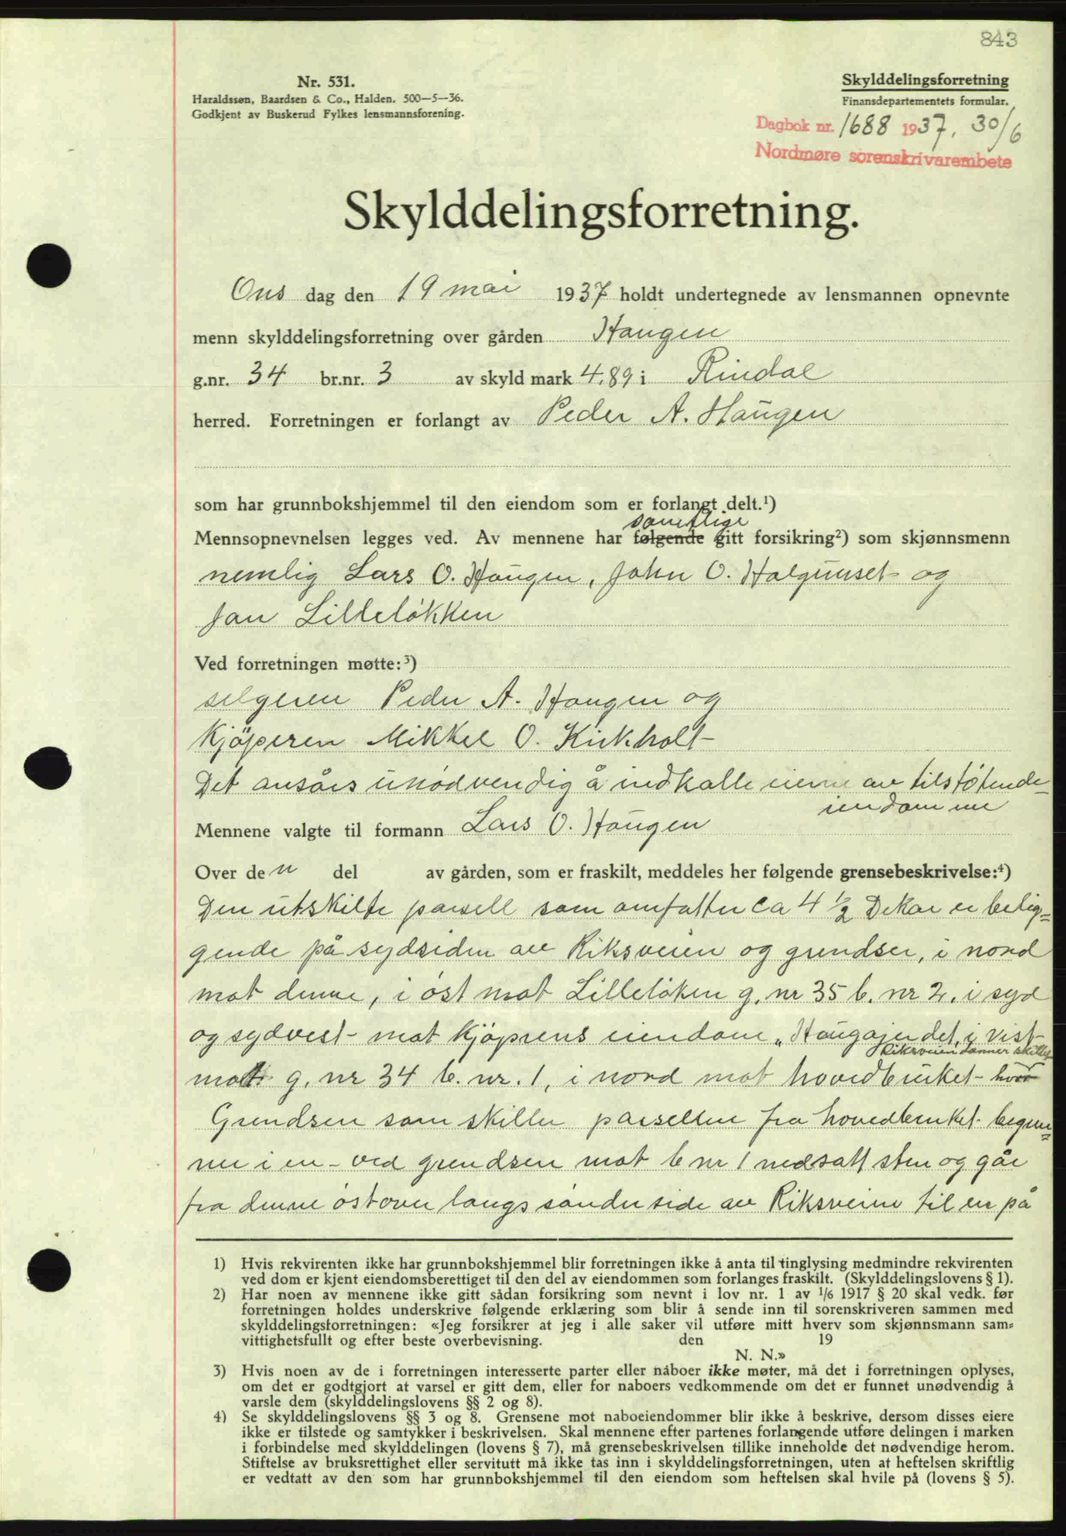 843
Nr. 531.
Haraldssøn, Baardsen & Co., Halden. 500—5—36.
Godkjent av Buskerud Fylkes lensmannsforening.
Skylddelingsforretning
Finansdepartementets formular.
Dagbok nr. 1688 1937, 30/6
Nordmøre sorenskrivarembete
Skylddelingsforretning.
Ons dag den 19 mai 1937 holdt undertegnede av lensmannen opnevnte
menn skylddelingsforretning over gården Haugen
g.nr. 34 br.nr. 3 av skyld mark 4,89 i Rindal
herred. Forretningen er forlangt av Peder A. Haugen
som har grunnbokshjemmel til den eiendom som er forlangt delt.¹)
samtlige
Mennsopnevnelsen legges ved. Av mennene har følgende gitt forsikring²) som skjønnsmenn
nemlig Lars O. Haugen, John O. Halgunset og
Jan Lilleløkken
Ved forretningen møtte:³)
selgeren Peder A. Haugen og
Kjøperen Mikkel O. Kirkholt
Det ansåes unødvendig å indkalle eierne av tilstøtende
eiendommer
Mennene valgte til formann Lars O. Haugen
Over den del av gården, som er fraskilt, meddeles her følgende grensebeskrivelse:⁴)
Den utskilte parsell som omfatter ca 4 ½ Dekar er belig=
gende på sydsiden av Riksveien og grendser, i nord
mot denne, i øst mot Lilleløken g. nr 35 b. nr 2, i syd
og sydvest mot Kjøperens eiendom „Haugajerdet, i vest
Riksveien danner skille
mot g. nr 34 b. nr. 1, i nord mot hovedbruket hvor
Grendsen som skiller parsellen fra hovedbruket begyn=
ner i en ved grendsen mot b nr 1 nedsatt sten og går
fra denne østover langs søndre side av Riksveien til en på
1) Hvis rekvirenten ikke har grunnbokshjemmel blir forretningen ikke å anta til tinglysing medmindre rekvirenten
ved dom er kjent eiendomsberettiget til den del av eiendommen som forlanges fraskilt. (Skylddelingslovens § 1).
2) Har noen av mennene ikke gitt sådan forsikring som nevnt i lov nr. 1 av 1/6 1917 § 20 skal vedk. før
forretningen holdes underskrive følgende erklæring som blir å sende inn til sorenskriveren sammen med
skylddelingsforretningen: «Jeg forsikrer at jeg i alle saker vil utføre mitt hverv som skjønnsmann sam=
vittighetsfullt og efter beste overbevisning. den 19
N. N.»
3) Hvis noen av de i forretningen interesserte parter eller naboer ikke møter, må det i forretningen oplyses,
om det er godtgjort at varsel er gitt dem, eller for naboers vedkommende om det er funnet unødvendig å
varsle dem (skylddelingslovens §§ 2 og 8).
4) Se skylddelingslovens §§ 3 og 8. Grensene mot naboeiendommer blir ikke å beskrive, dersom disses eiere
ikke er tilstede og samtykker i beskrivelsen. Skal mennene efter partenes forlangende utføre delingen i marken
i forbindelse med skylddelingen (lovens § 7), må grensebeskrivelsen tillike inneholde det nødvendige herom.
Stiftelse av bruksrettighet eller servitutt må ikke tas inn i skylddelingsforretningen, uten at heftelsen skriftlig
er vedtatt av den som har grunnbokshjemmel til den eiendom som heftelsen skal hvile på (lovens § 5).